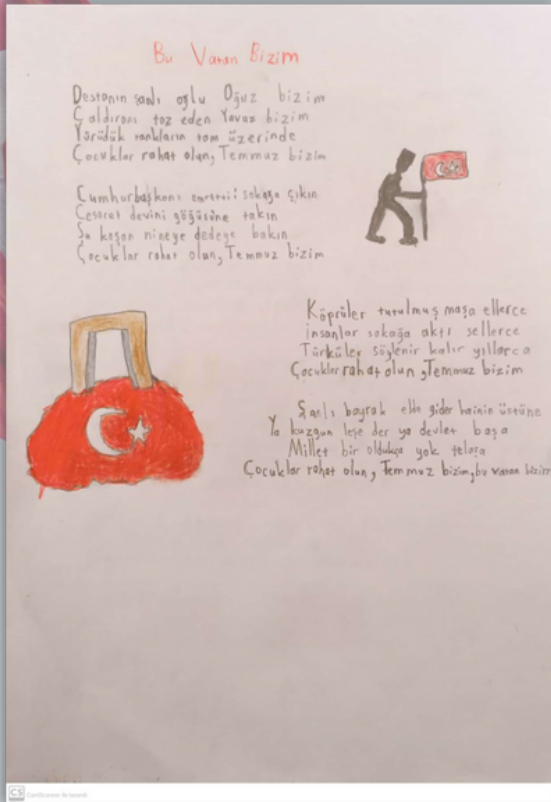 Bu Vatan Bizim
Destanın şanlı oğlu Oğuz bizim
Çaldıranı toz eden Yavuz bizim
Yürüdük tankların tam üzerinde
Çocuklar rahat olun, Temmuz bizim
Cumhurbaşkanı emretti: sokağa çıkın
Cesaret devini göğüsüne takın
Şu koşan nineye dedeye bakın
Çocuklar rahat olun, Temmuz bizim
Köprüler tutulmuş maşa ellerce
insanlar sokağa aktı sellerce
Türküler söylenir kalır yıllarca
Çocuklar rahat olun, Temmuz bizim
Şanlı bayrak elde gider hainin üstüne
Ya kuzgun leşe der ya devlet başa
Millet bir oldukça yok telaşa
Çocuklar rahat olun, Temmuz bizim, bu vatan bizim
CS CamScanner ile tarandı